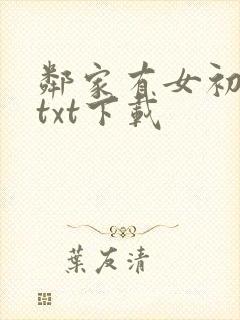 鄰家有女初
txt下載
葉友清